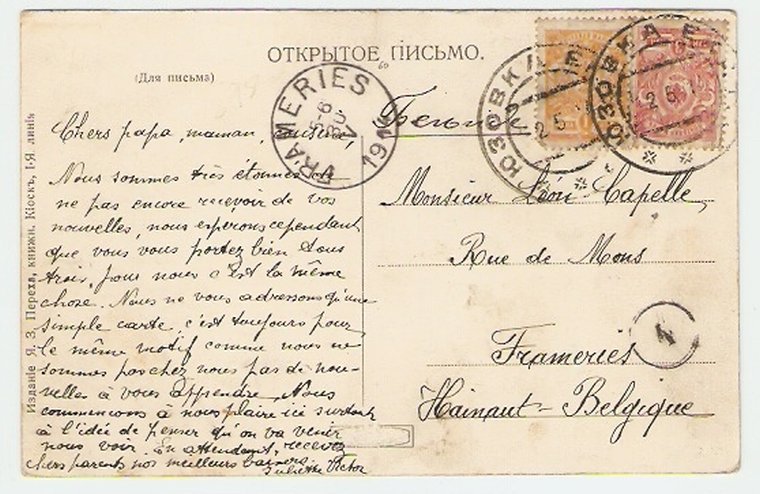 ОТКРЫТОЕ ПИСЬМО.
(Для письма)
Изданіе Я. З. Переха, книжн. Кіоскъ, І-я линія
FRAMERIES
5-6
30
V
191
ЮЗОВКА Е
2 5
ЮЗОВКА Е
2 5
4
Chers papa, maman,
Nous sommes très étonnés de
ne pas encore recevoir de vos
nouvelles, nous esperons cependant
que vous vous portez bien tous
trois, pour nous c'est la même
chose. Nous ne vous adressons qu'une
simple carte, c'est toujours pour
le même motif comme nous ne
sommes pas chez nous pas de nou-
velles à vous apprendre. Nous
commencons à nous plaire ici surtout
à l'idée de penser qu'on va venir
nous voir. En attendant, recevez
chers parents nos meilleurs baisers
Juliette Victor
Monsieur Léon Capelle,
Rue de Mons
Frameries
Hainaut-Belgique